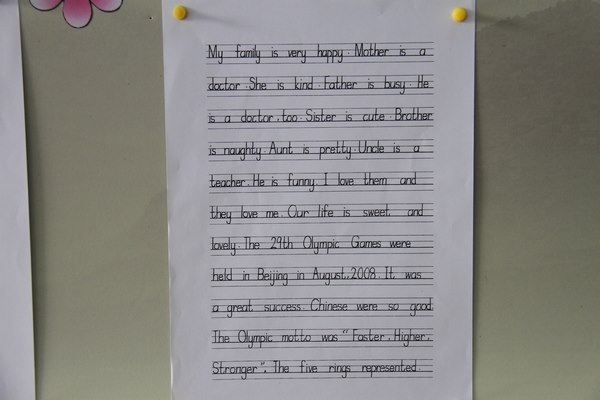 My family is very happy. Mother is a
doctor. She is kind. Father is busy. He
is a doctor, too. Sister is cute. Brother
is naughty. Aunt is pretty. Uncle is a
teacher. He is funny. I love them and
they love me. Our life is sweet and
lovely. The 29th Olympic Games were
held in Beijing in August, 2008. It was
a great success. Chinese were so good.
The Olympic motto was "Faster, Higher,
Stronger". The five rings represented.